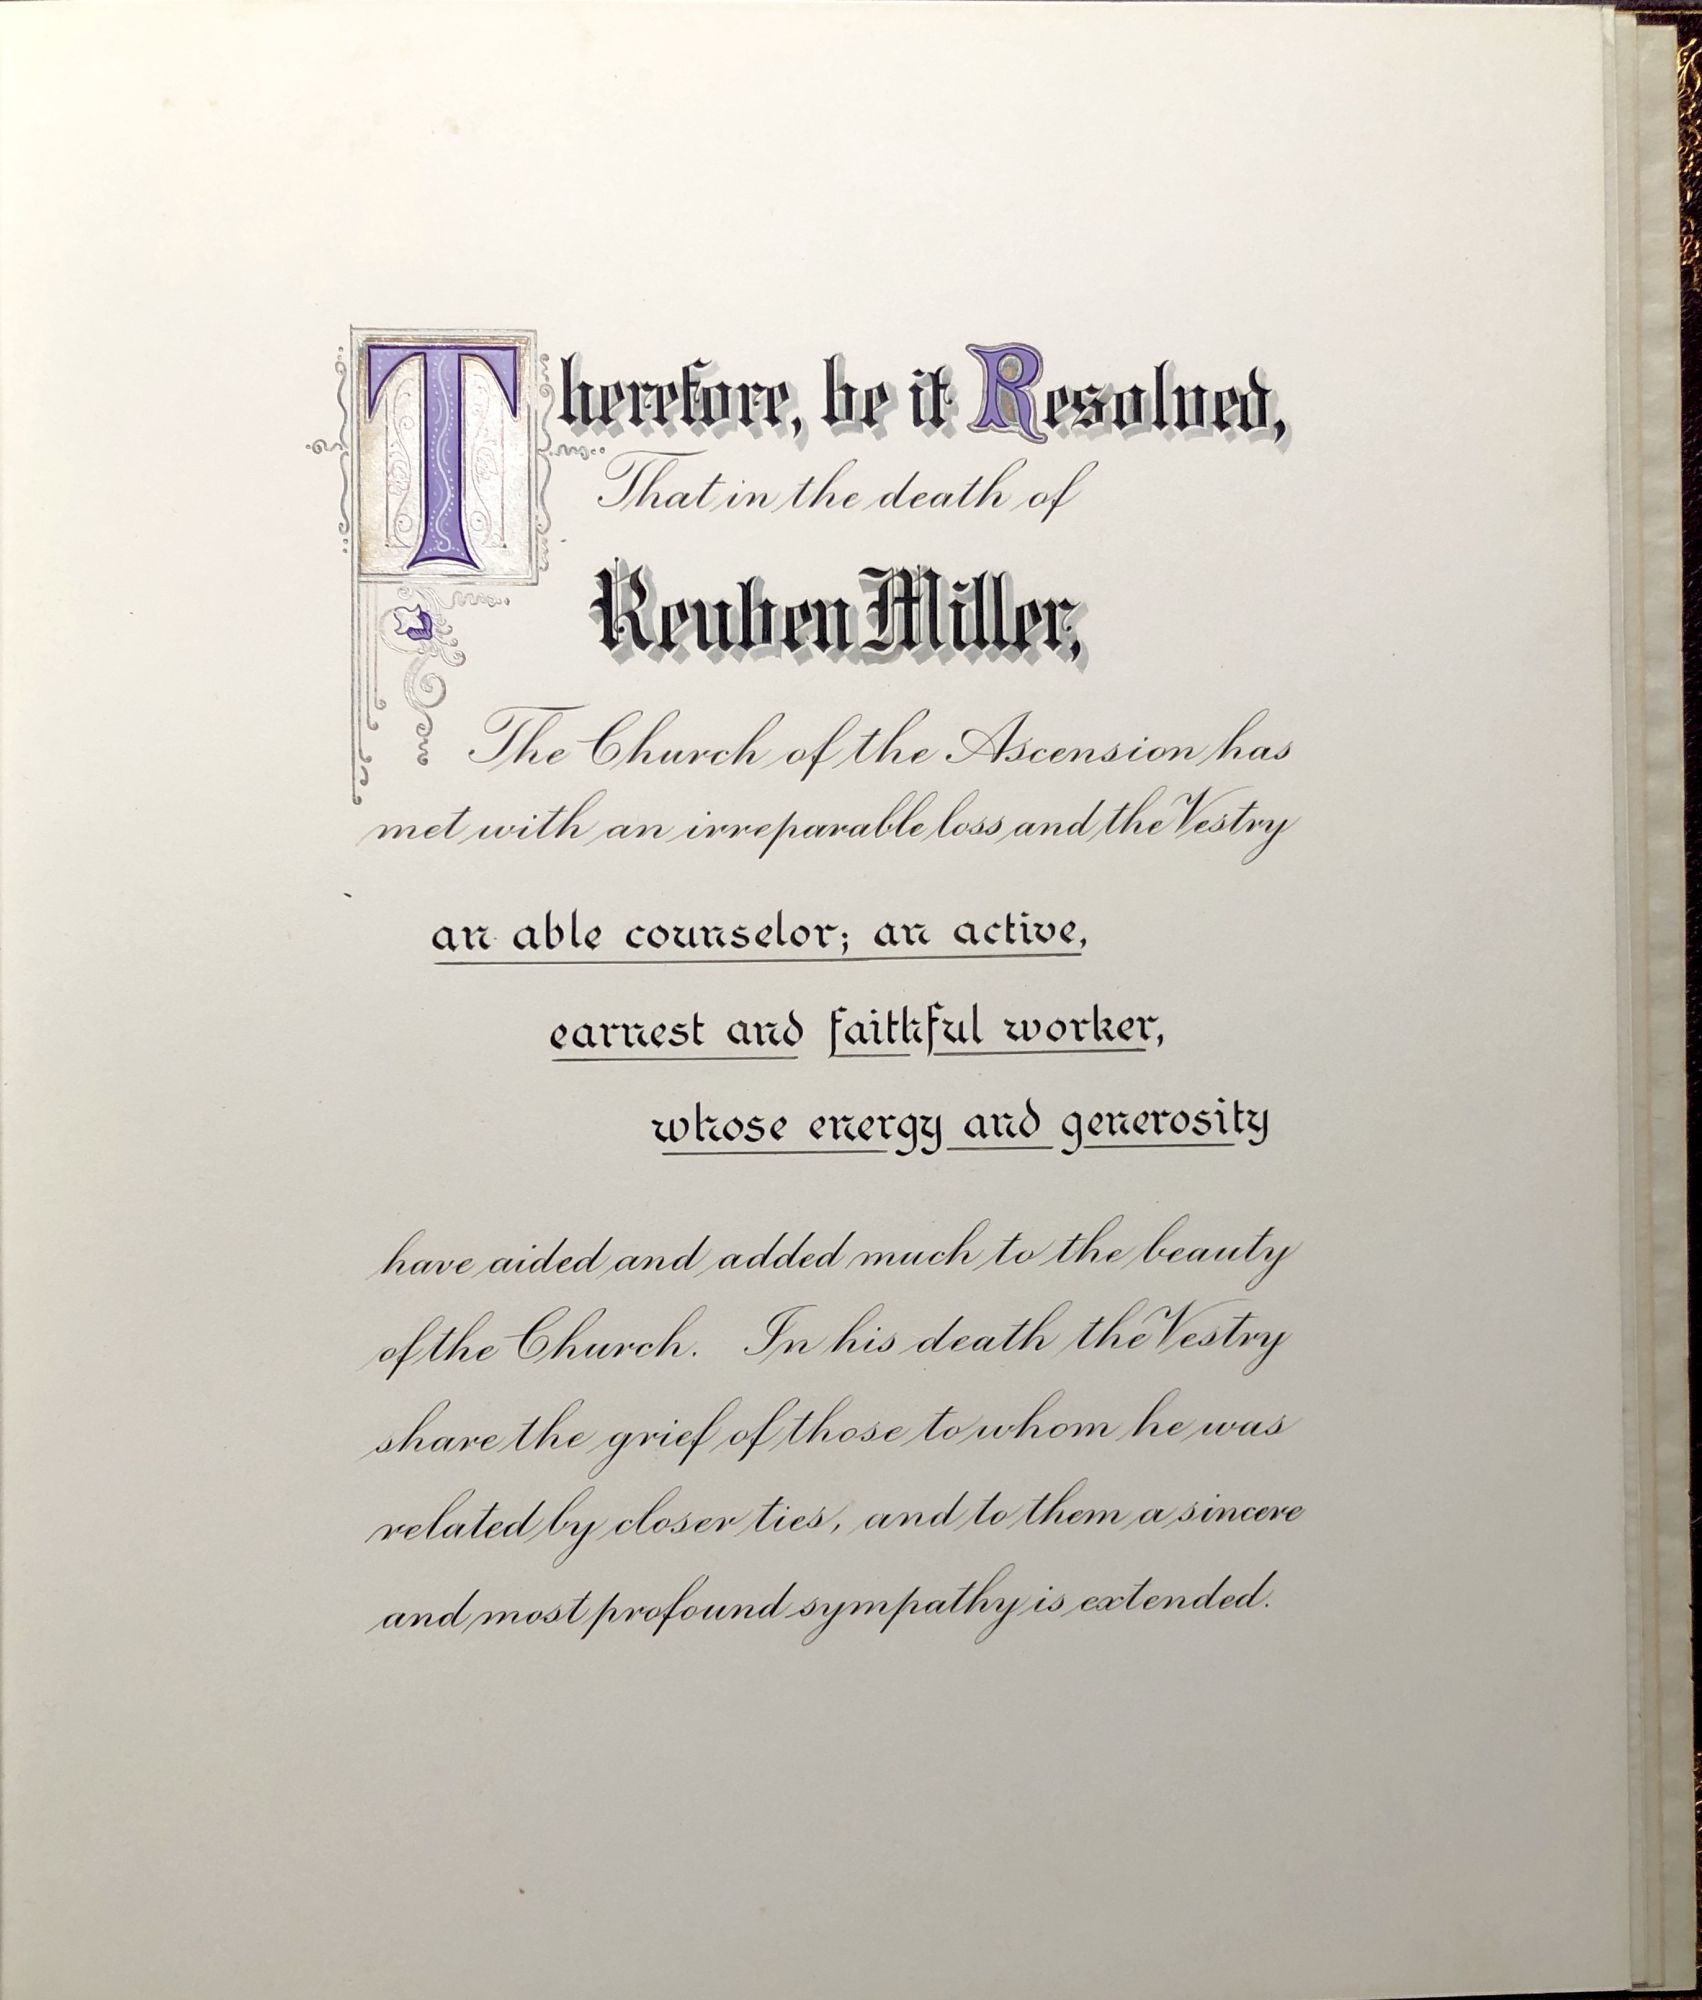 Therefore, be it Resolved,
That in the death of
Reuben Miller,
The Church of the Ascension has
met with an irreparable loss and the Vestry
an able counselor; an active,
earnest and faithful worker,
whose energy and generosity
have aided and added much to the beauty
of the Church. In his death the Vestry
share the grief of those to whom he was
related by closer ties, and to them a sincere
and most profound sympathy is extended.